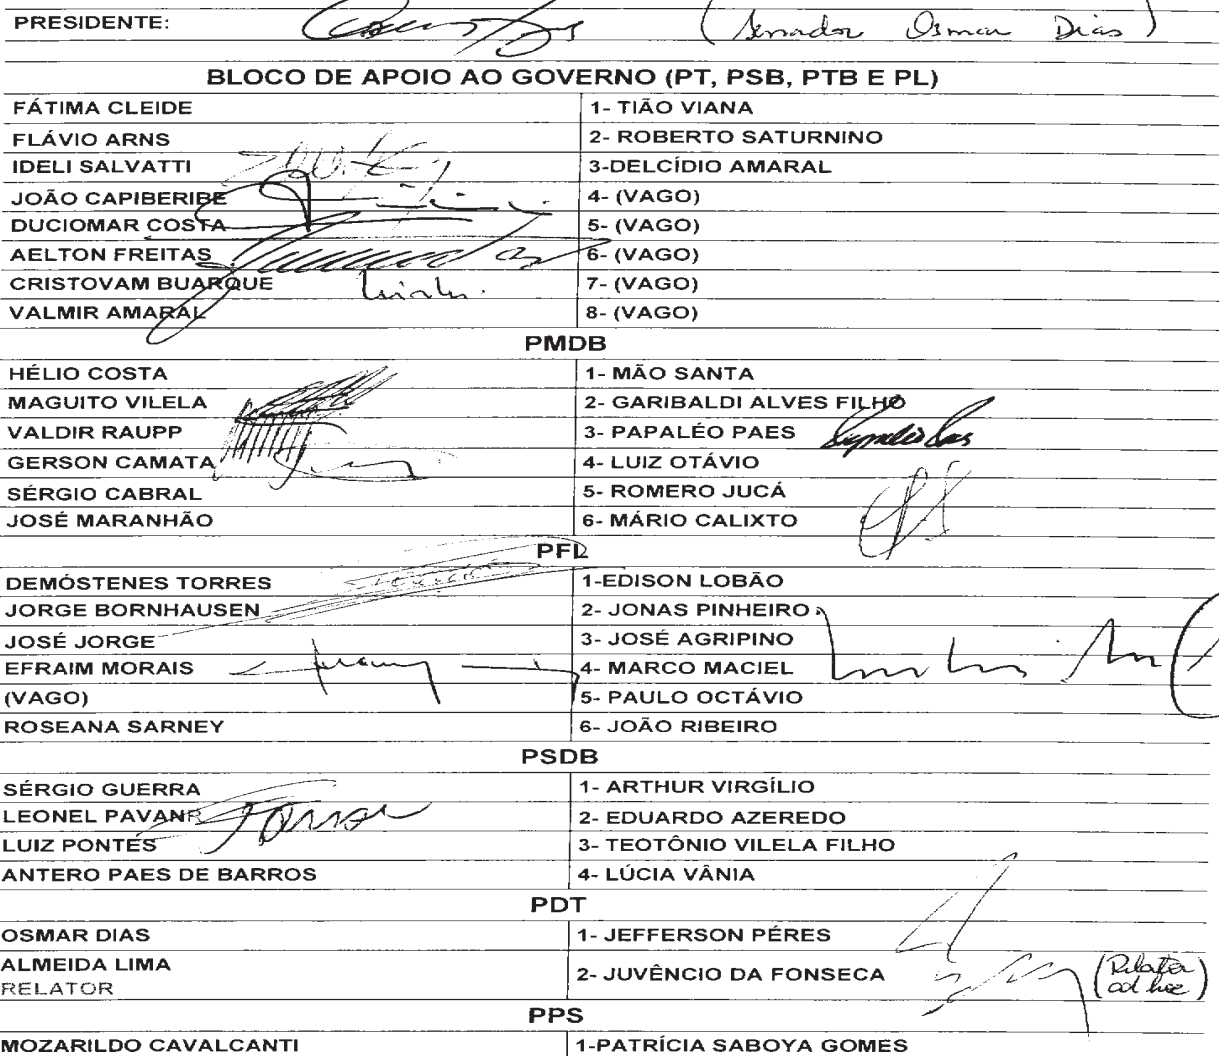 PRESIDENTE: (Senador Osmar Dias)
BLOCO DE APOIO AO GOVERNO (PT, PSB, PTB E PL)
FÁTIMA CLEIDE 1- TIÃO VIANA
FLÁVIO ARNS 2- ROBERTO SATURNINO
IDELI SALVATTI 3-DELCÍDIO AMARAL
JOÃO CAPIBERIBE 4- (VAGO)
DUCIOMAR COSTA 5- (VAGO)
AELTON FREITAS 6- (VAGO)
CRISTOVAM BUARQUE 7- (VAGO)
VALMIR AMARAL 8- (VAGO)
PMDB
HÉLIO COSTA 1- MÃO SANTA
MAGUITO VILELA 2- GARIBALDI ALVES FILHO
VALDIR RAUPP 3- PAPALÉO PAES
GERSON CAMATA 4- LUIZ OTÁVIO
SÉRGIO CABRAL 5- ROMERO JUCÁ
JOSÉ MARANHÃO 6- MÁRIO CALIXTO
PFL
DEMÓSTENES TORRES 1-EDISON LOBÃO
JORGE BORNHAUSEN 2- JONAS PINHEIRO
JOSÉ JORGE 3- JOSÉ AGRIPINO
EFRAIM MORAIS 4- MARCO MACIEL
(VAGO) 5- PAULO OCTÁVIO
ROSEANA SARNEY 6- JOÃO RIBEIRO
PSDB
SÉRGIO GUERRA 1- ARTHUR VIRGÍLIO
LEONEL 2- EDUARDO AZEREDO
LUIZ PONTES 3- TEOTÔNIO VILELA FILHO
ANTERO PAES DE BARROS 4- LÚCIA VÂNIA
PDT
OSMAR DIAS 1- JEFFERSON PÉRES
ALMEIDA LIMA
RELATOR 2- JUVÊNCIO DA FONSECA (Relator
ad hoc)
PPS
MOZARILDO CAVALCANTI 1-PATRÍCIA SABOYA GOMES